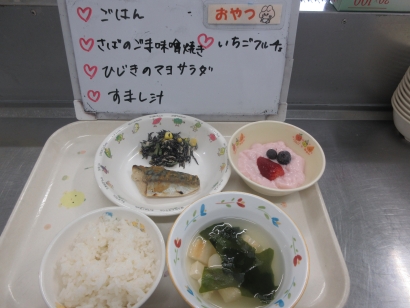 ごはん
さばのごま味噌焼き
ひじきのマヨサラダ
すまし汁
おやつ
いちごフルーチェ